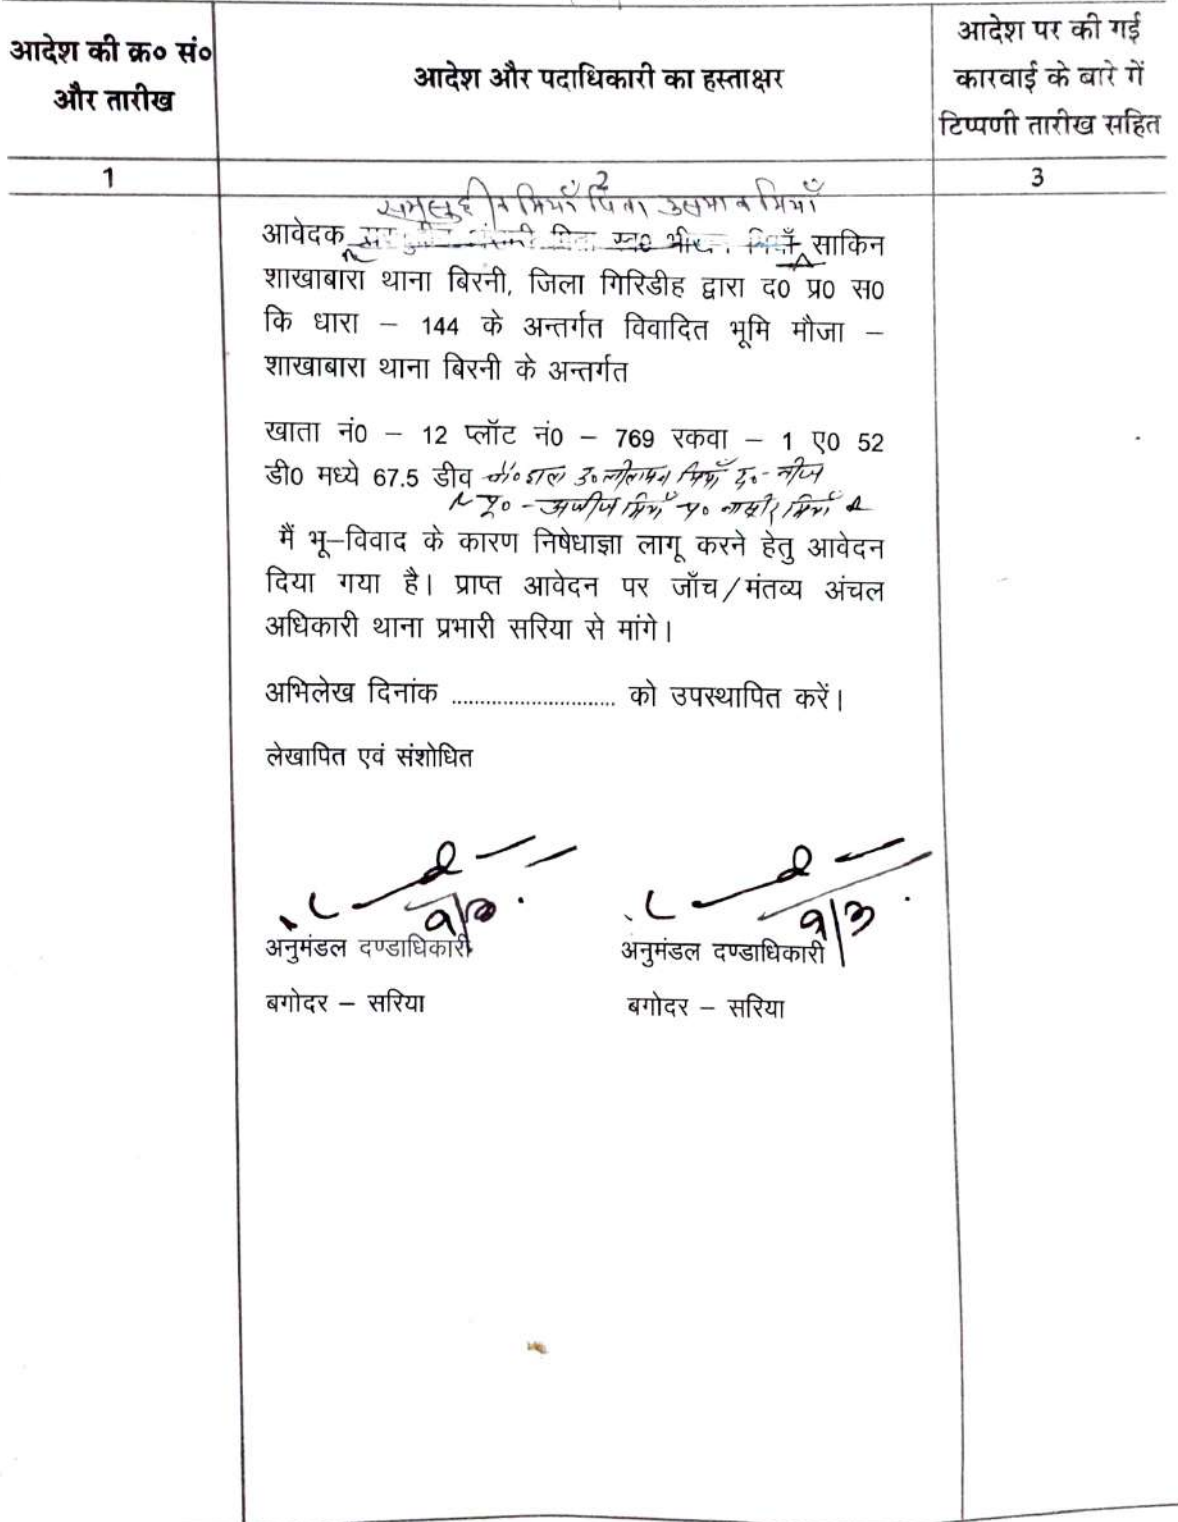 आदेश की क्र० सं०
और तारीख
आदेश और पदाधिकारी का हस्ताक्षर
आदेश पर की गई
कारवाई के बारे में
टिप्पणी तारीख सहित
1
2
3
समसुद्दीन मियाँ पिता उसमान मियाँ
आवेदक स्व० साकिन
शाखाबारा थाना बिरनी, जिला गिरिडीह द्वारा द0 प्र0 स0
कि धारा – 144 के अन्तर्गत विवादित भूमि मौजा –
शाखाबारा थाना बिरनी के अन्तर्गत
खाता नं0 – 12 प्लॉट नं0 – 769 रकवा – 1 ए0 52
डी0 मध्ये 67.5 डीव मियाँ द०- नीज
पू० - अजीज मियाँ प० मियाँ
मैं भू–विवाद के कारण निषेधाज्ञा लागू करने हेतु आवेदन
दिया गया है। प्राप्त आवेदन पर जाँच/मंतव्य अंचल
अधिकारी थाना प्रभारी सरिया से मांगे।
अभिलेख दिनांक ............................ को उपस्थापित करें।
लेखापित एवं संशोधित
9/3 9/3
अनुमंडल दण्डाधिकारी अनुमंडल दण्डाधिकारी
बगोदर – सरिया बगोदर – सरिया